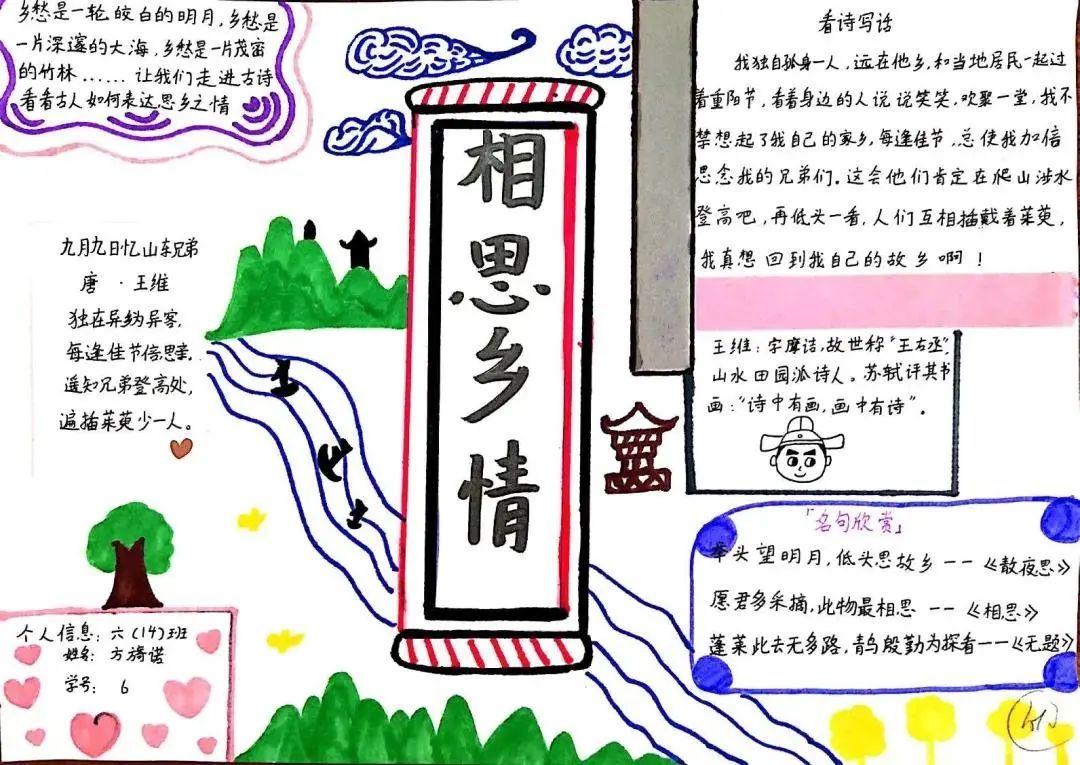 乡愁是一轮皎白的明月,乡愁是
一片深邃的大海,乡愁是一片茂密
的竹林……让我们走进古诗
看看古人如何表达思乡之情
九月九日忆山东兄弟
唐·王维
独在异乡为异客,
每逢佳节倍思亲,
遥知兄弟登高处,
遍插茱萸少一人。
相思乡情
看诗写话
我独自孤身一人,远在他乡,和当地居民一起过
着重阳节,看着身边的人说说笑笑,欢聚一堂,我不
禁想起了我自己的家乡,每逢佳节,总使我加倍
思念我的兄弟们。这会他们肯定在爬山涉水
登高吧,再低头一看,人们互相插戴着茱萸,
我真想回到我自己的故乡啊!
王维:字摩诘,故世称“王右丞”,
山水田园派诗人。苏轼评其书
画:“诗中有画,画中有诗”。
「名句欣赏」
举头望明月,低头思故乡——《静夜思》
愿君多采摘,此物最相思——《相思》
蓬莱此去无多路,青鸟殷勤为探看——《无题》
个人信息:六(14)班
姓名:方旖诺
学号:6